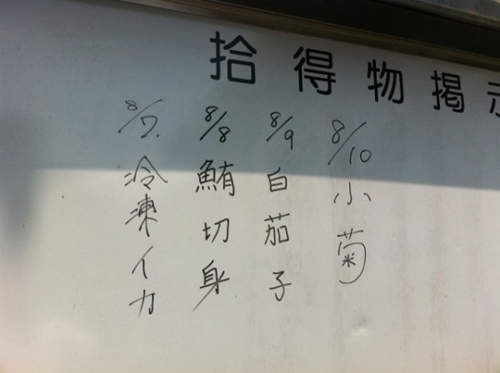 拾得物掲示
8/10小菊
8/9白茄子
8/8鮪切身
8/7.冷凍イカ